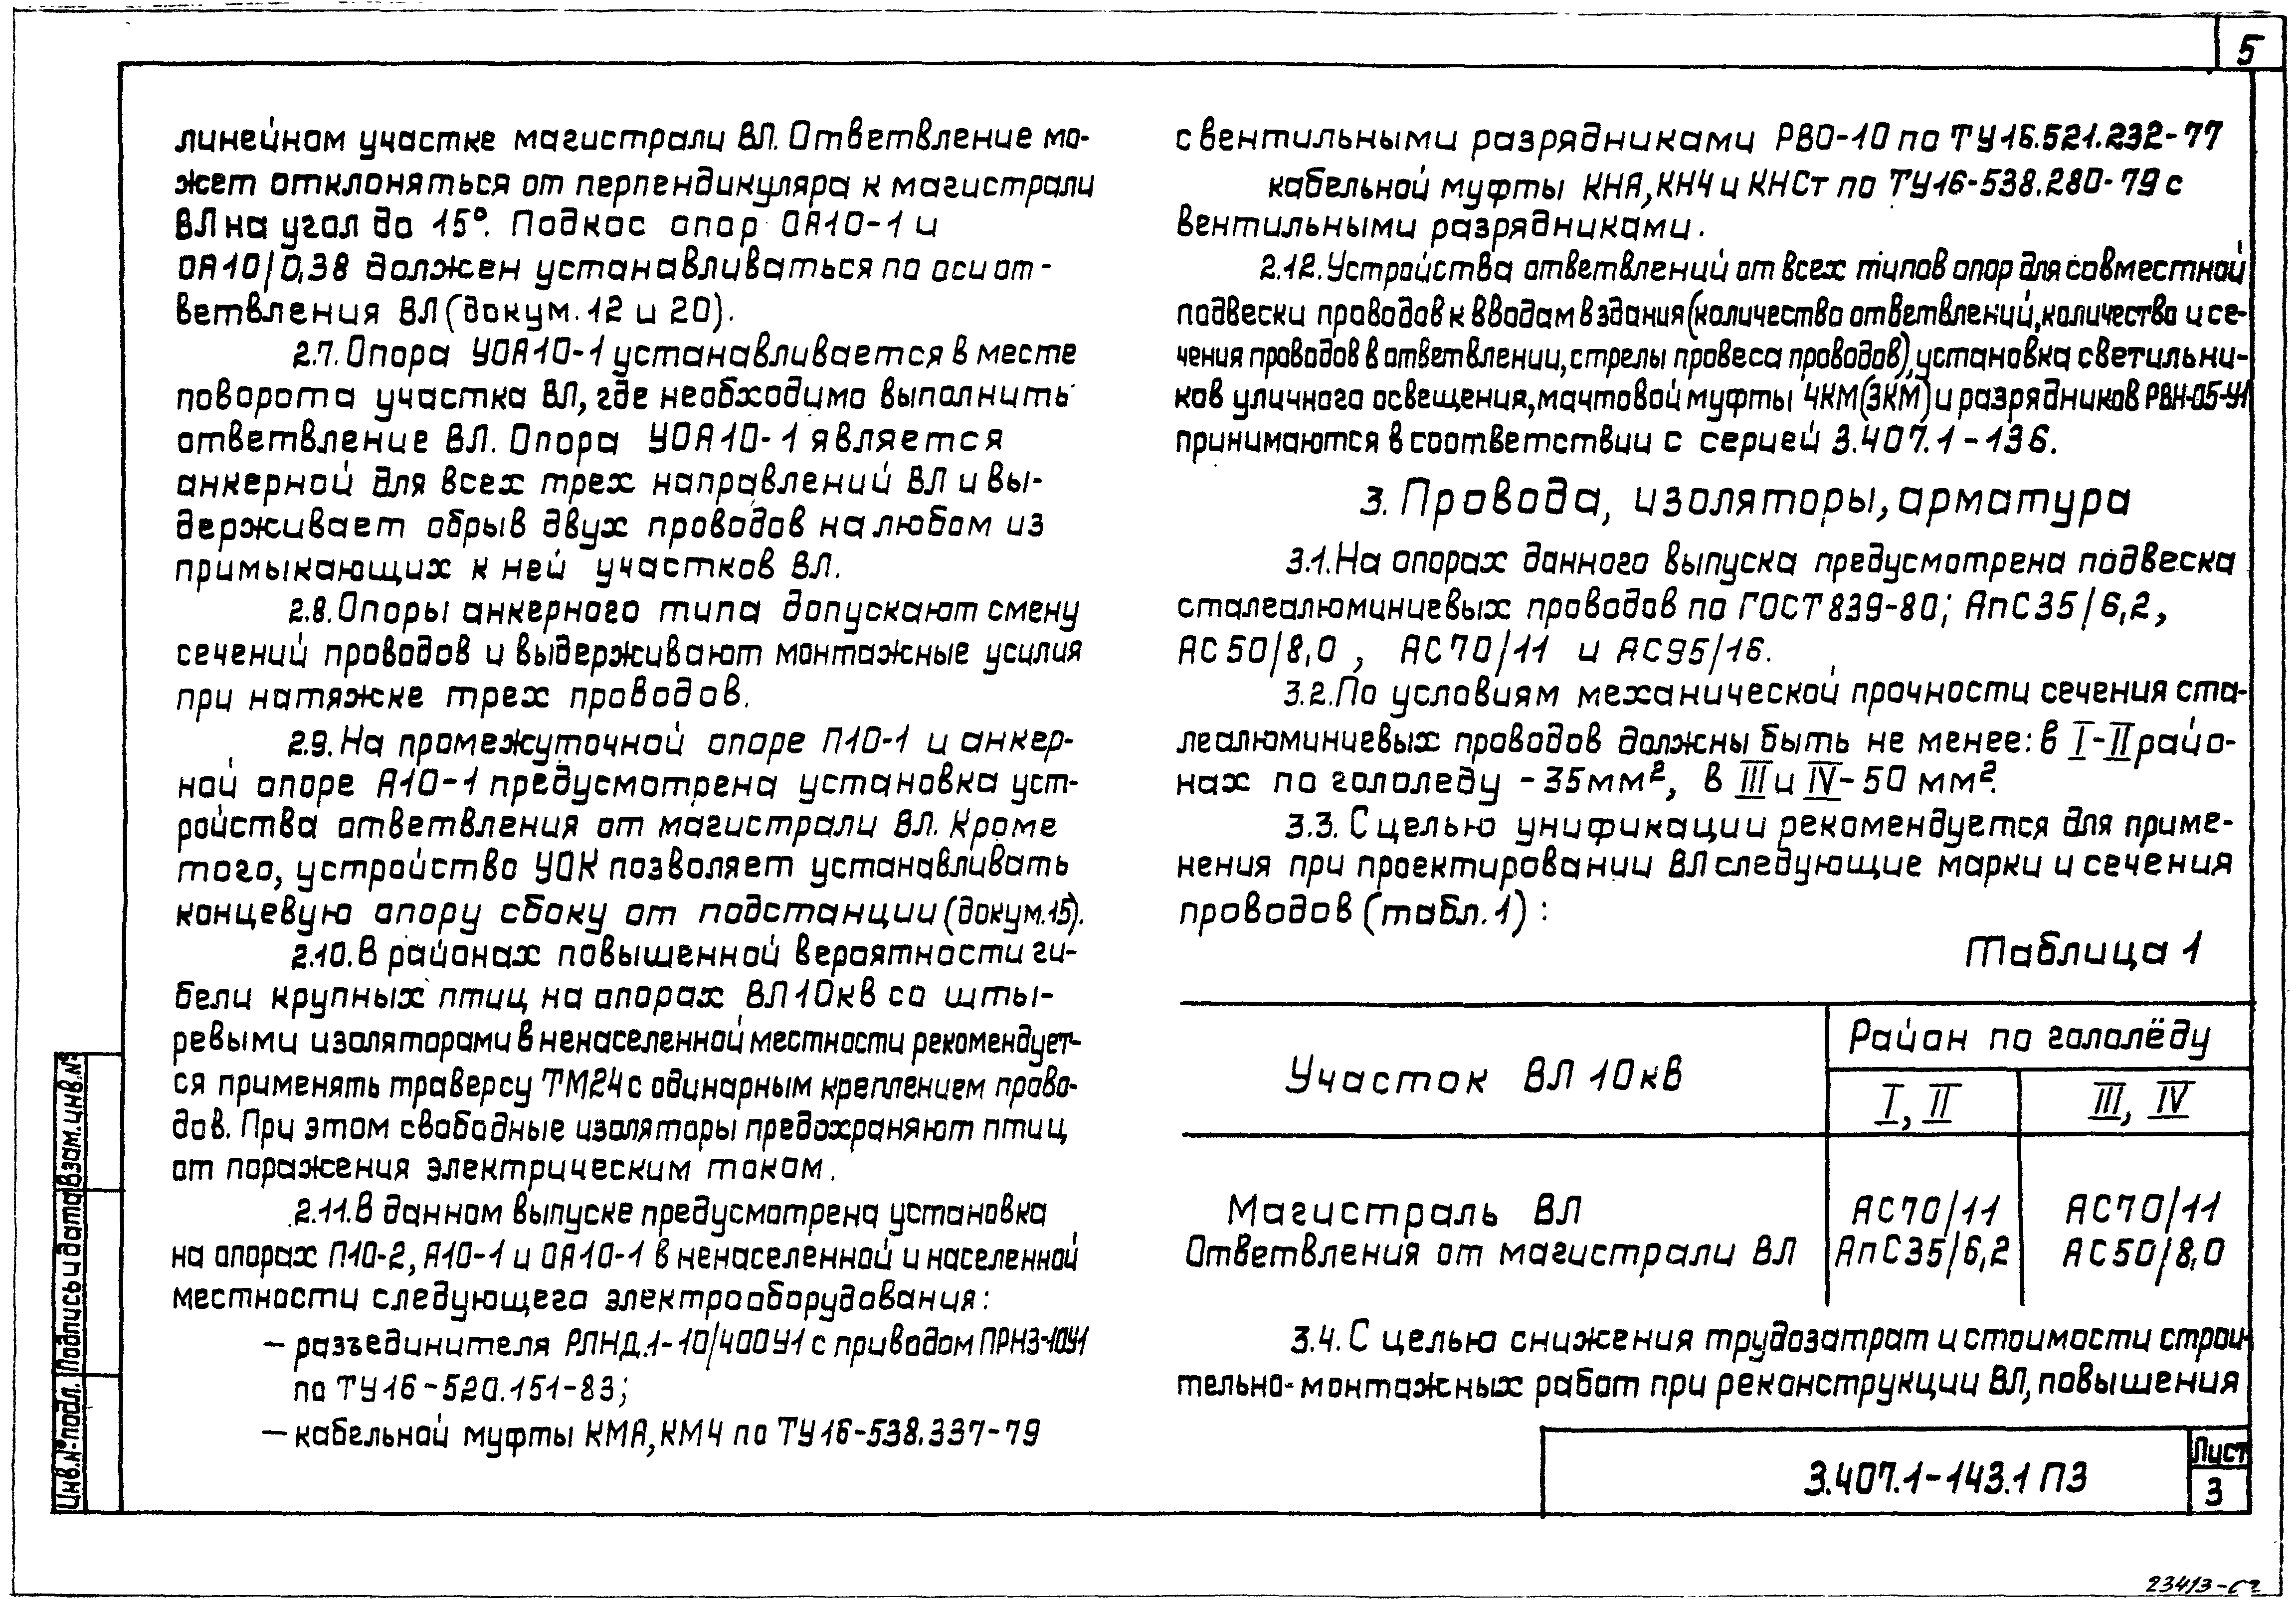 5
линейном участке магистрали ВЛ. Ответвление мо-
жет отклоняться от перпендикуляра к магистрали
ВЛ на угол до 15°. Подкос опор ОА10-1 и
ОА10/0,38 должен устанавливаться по оси от-
ветвления ВЛ (докум. 12 и 20).
2.7. Опора УОА10-1 устанавливается в месте
поворота участка ВЛ, где необходимо выполнить
ответвление ВЛ. Опора УОА10-1 является
анкерной для всех трех направлений ВЛ и вы-
держивает обрыв двух проводов на любом из
примыкающих к ней участков ВЛ.
2.8. Опоры анкерного типа допускают смену
сечений проводов и выдерживают монтажные усилия
при натяжке трех проводов.
2.9. На промежуточной опоре П10-1 и анкер-
ной опоре А10-1 предусмотрена установка уст-
ройства ответвления от магистрали ВЛ. Кроме
того, устройство УОК позволяет устанавливать
концевую опору сбоку от подстанции (докум.15).
2.10. В районах повышенной вероятности ги-
бели крупных птиц на опорах ВЛ10кВ со шты-
ревыми изоляторами в ненаселенной местности рекомендует-
ся применять траверсу ТМ24 с одинарным креплением прово-
дов. При этом свободные изоляторы предохраняют птиц
от поражения электрическим током.
2.11. В данном выпуске предусмотрена установка
на опорах П10-2, А10-1 и ОА10-1 в ненаселенной и населенной
местности следующего электрооборудования:
— разъединителя РЛНД.1-10/400У1 с приводом ПРНЗ-10У1
по ТУ16-520.151-83;
— кабельной муфты КМА, КМЧ по ТУ16-538.337-79
с вентильными разрядниками РВО-10 по ТУ16.521.232-77
кабельной муфты КНА, КНЧ и КНСт по ТУ16-538.280-79 с
вентильными разрядниками.
2.12. Устройства ответвлений от всех типов опор для совместной
подвески проводов к вводам в здания (количество ответвлений, количество и се-
чения проводов в ответвлении, стрелы провеса проводов), установка светильни-
ков уличного освещения, мачтовой муфты 4КМ(3КМ) и разрядников РВН-05-У1
принимаются в соответствии с серией 3.407.1-136.
3. Провода, изоляторы, арматура
3.1. На опорах данного выпуска предусмотрена подвеска
сталеалюминиевых проводов по ГОСТ 839-80; АпС35/6,2,
АС50/8,0, АС70/11 и АС95/16.
3.2. По условиям механической прочности сечения ста-
леалюминиевых проводов должны быть не менее: в I-II райо-
нах по гололеду - 35мм², в III и IV - 50 мм².
3.3. С целью унификации рекомендуется для приме-
нения при проектировании ВЛ следующие марки и сечения
проводов (табл. 1):
Таблица 1
Участок ВЛ 10кВ
Район по гололёду
I, II
III, IV
Магистраль ВЛ АС70/11 АС70/11
Ответвления от магистрали ВЛ АпС35/6,2 АС50/8,0
3.4. С целью снижения трудозатрат и стоимости строи-
тельно-монтажных работ при реконструкции ВЛ, повышения
3.407.1-143.1 ПЗ
Лист
3
Взам.инв.№
Подпись и дата
Инв.№подл.